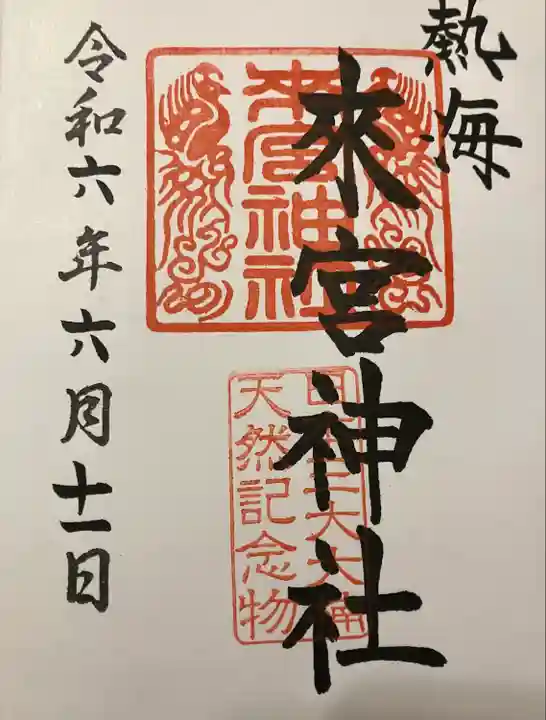 熱海
來宮神社
來宮神社
天然記念物
令和六年六月十一日